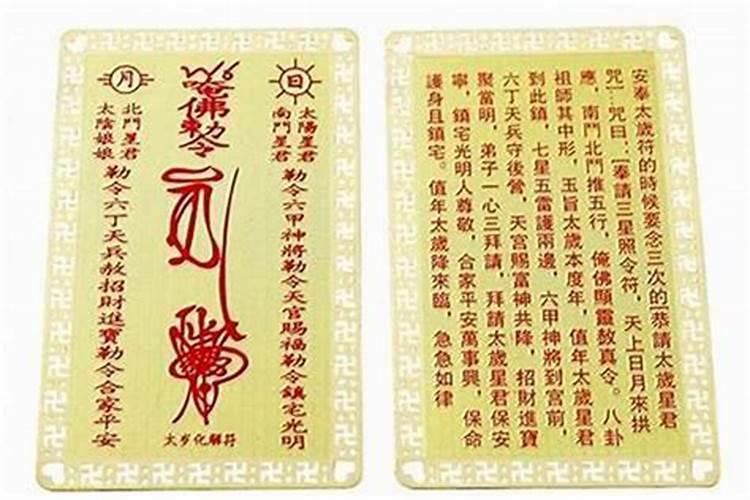 日
太陽星君
南鬥星君
勒令六甲神將勒令天官賜福勒令鎮宅光明
唵佛勅令
太岁化解符
月
北鬥星君
太陰娘娘
勒令六丁天兵敖招財進寶勒令合家平安
安奉太歲符的時候要念三次的[恭請太歲星君
咒]…咒曰:[奉請三星照令符,天上日月來拱
應,南鬥北鬥推五行,俺佛顯靈敖真令。八卦
祖師其中形,玉旨太歲本度年,值年太歲星君
到此鎮,七星五雷護兩邊,六甲神將到宮前,
六丁天兵守後營,天宮賜富神共降,招財進寶
聚當明,弟子一心三拜請,拜請太歲星君保安
寧,鎮宅光明人尊敬,合家平安萬事興,保命
護身且鎮宅。值年太歲降來臨,急急如律